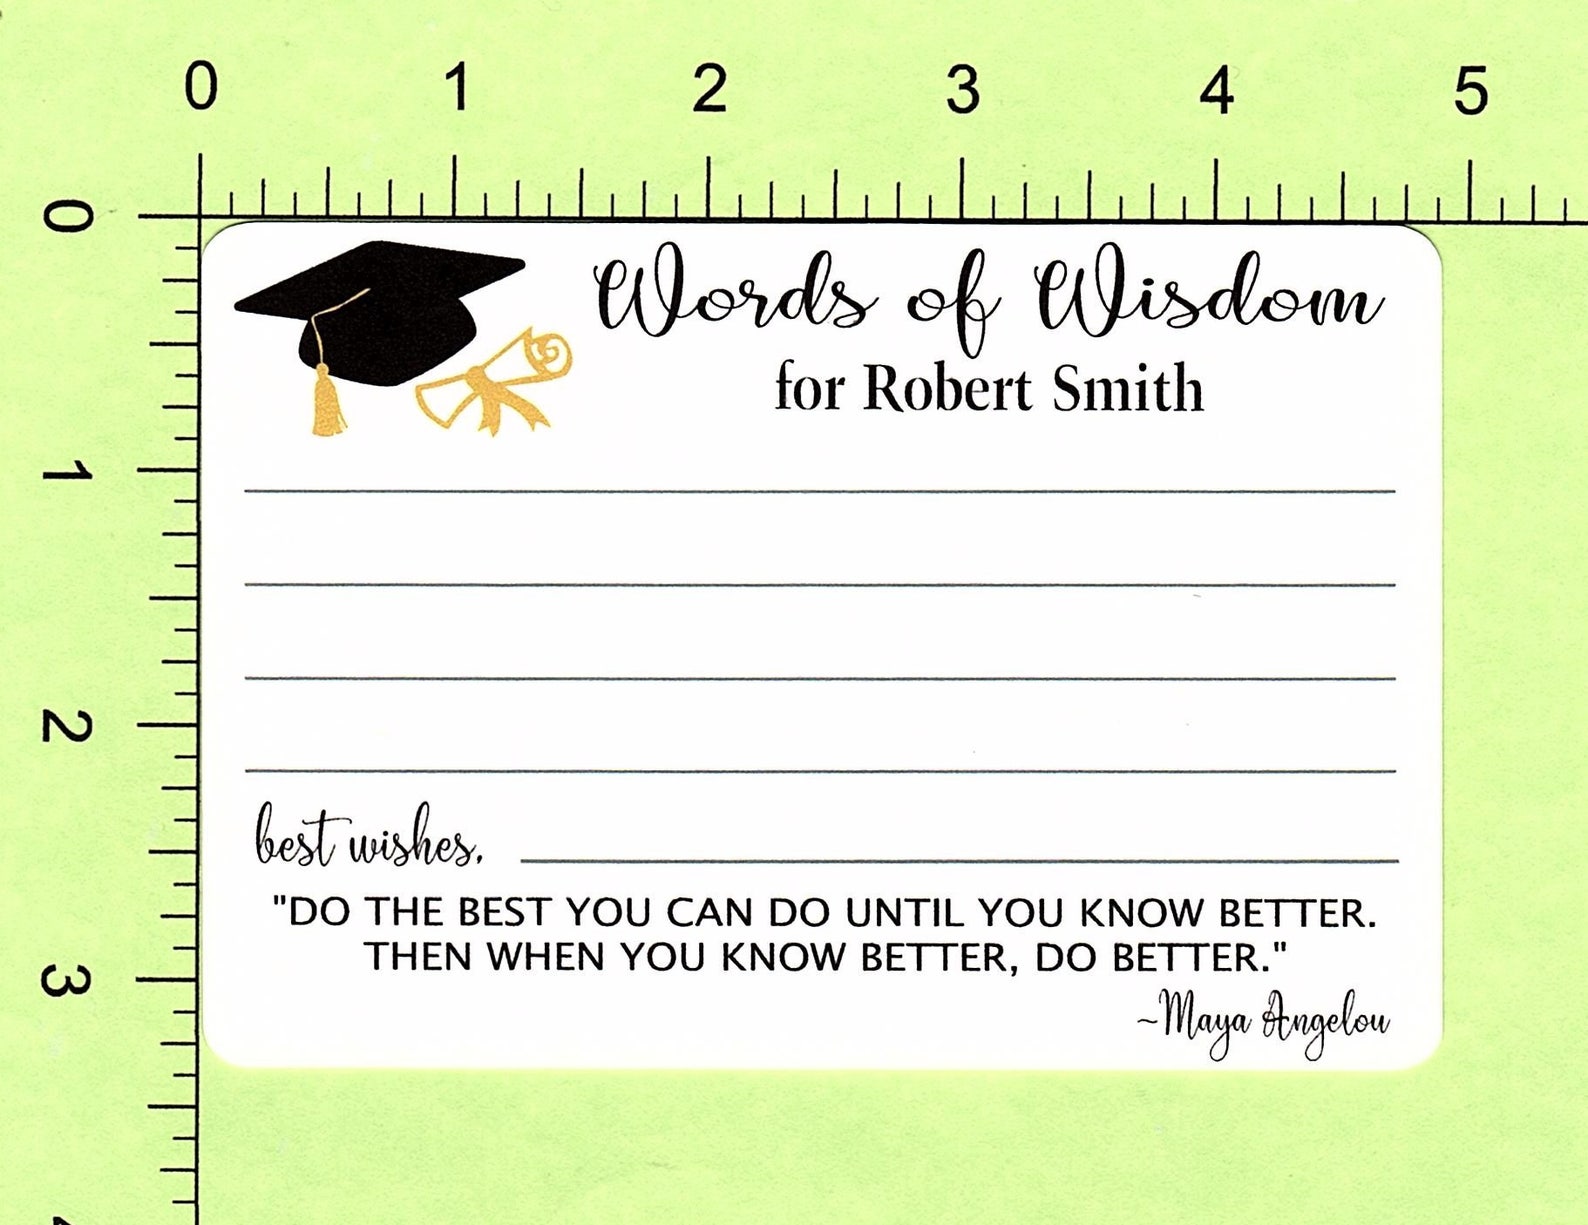 0 1 2 3 4 5
0
1
2
3
Words of Wisdom
for Robert Smith
best wishes,
"DO THE BEST YOU CAN DO UNTIL YOU KNOW BETTER.
THEN WHEN YOU KNOW BETTER, DO BETTER."
~Maya Angelou